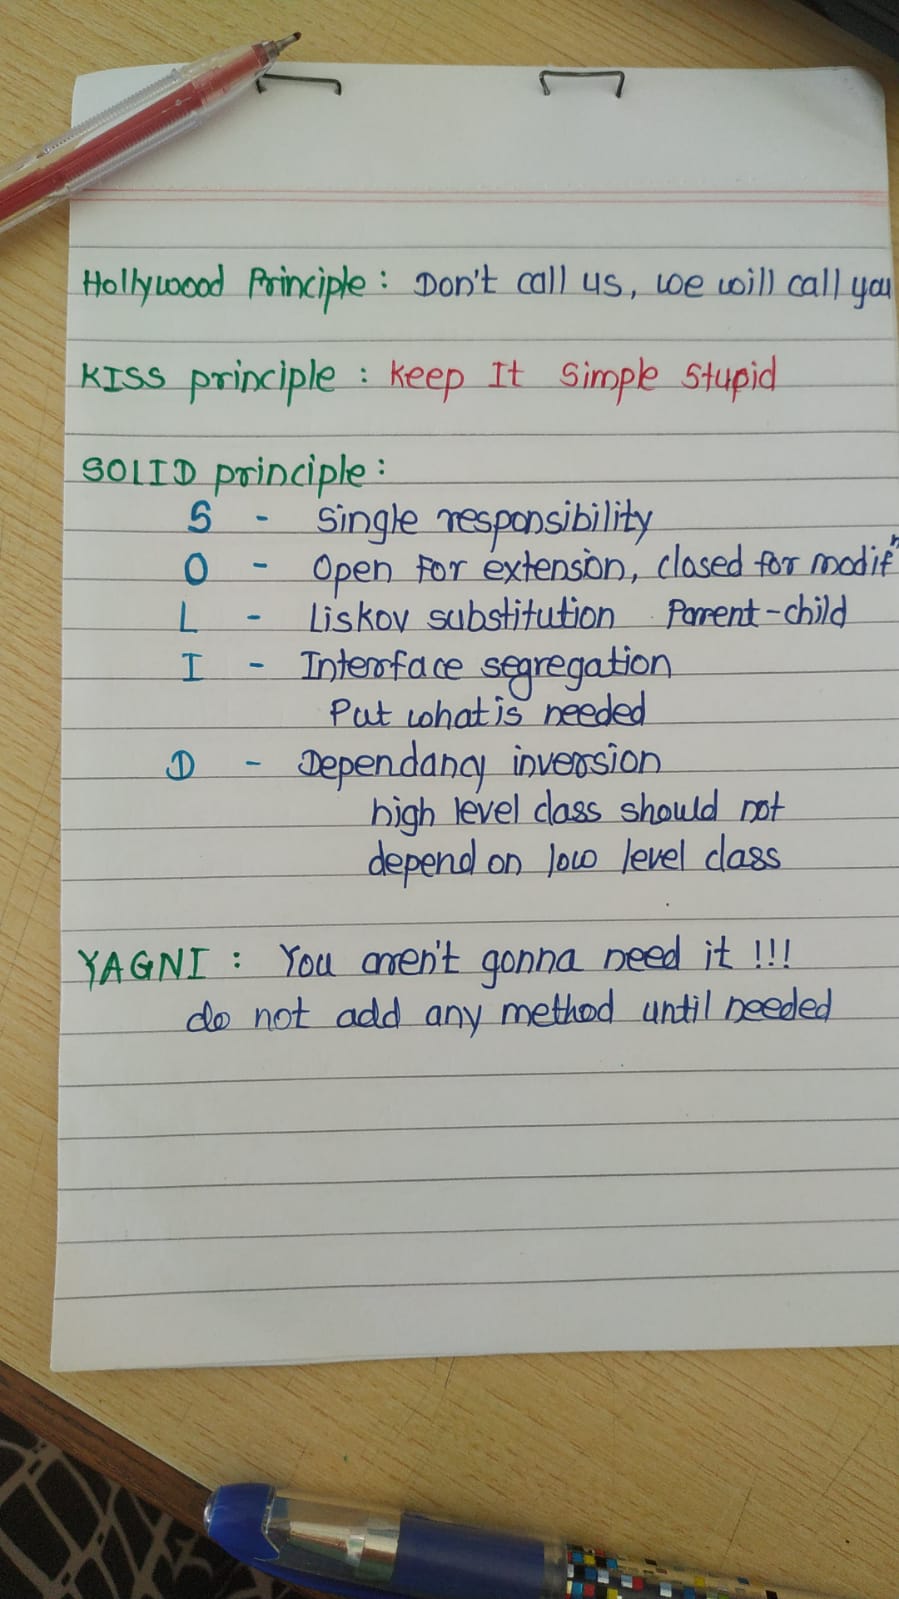 Hollywood Principle : Don't call us, we will call you
KISS principle : Keep It Simple Stupid
SOLID principle :
S - Single responsibility
O - Open for extension, closed for modifⁿ
L - Liskov substitution Parent-child
I - Interface segregation
Put what is needed
D - Dependancy inversion
high level class should not
depend on low level class
YAGNI : You aren't gonna need it !!!
do not add any method until needed